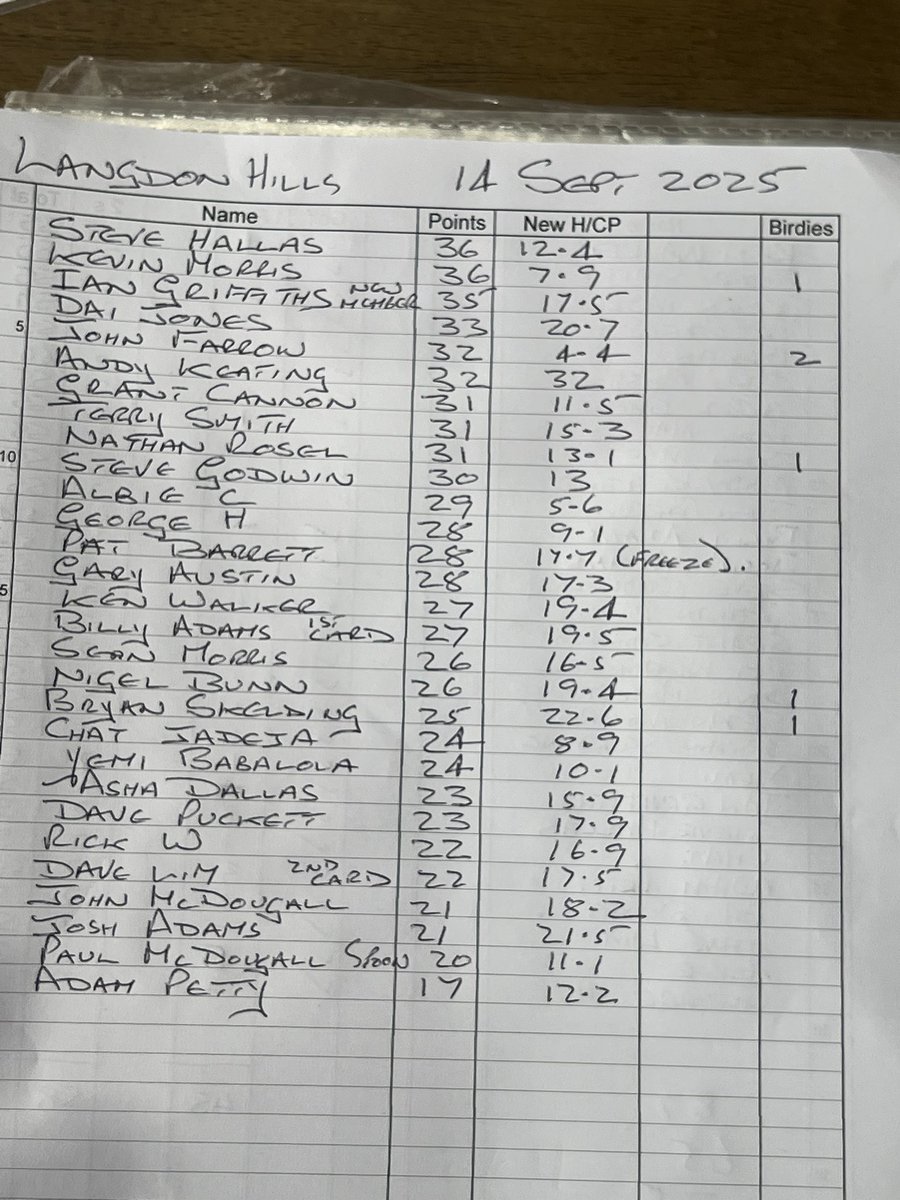 LANGDON HILLS 14 SEPT 2025
Name Points New H/CP Birdies
STEVE HALLAS 36 12.4
KEVIN MORRIS 36 7.9 1
IAN GRIFFITHS NEW MEMBER 35 17.5
DAI JONES 33 20.7
5 JOHN FARROW 32 4-4 2
ANDY KEATING 32 32
GRANT CANNON 31 11.5
TERRY SMITH 31 15-3
NATHAN ROSEL 31 13-1 1
10 STEVE GODWIN 30 13
ALBIE C 29 5-6
GEORGE H 28 9-1
PAT BARRETT 28 17.7 (FREEZE).
GARY AUSTIN 28 17-3
5 KEN WALKER 27 19-4
BILLY ADAMS 1ST CARD 27 19.5
SEAN MORRIS 26 16-5
NIGEL BUNN 26 19.4 1
BRYAN SKELDING 25 22.6 1
CHAT JADEJA 24 8.9
YEMI BABALOLA 24 10.1
TASHA DALLAS 23 15.9
DAVE PUCKETT 23 17.9
RICK W 22 16.9
DAVE LIM 2ND CARD 22 17.5
JOHN MCDOUGALL 21 18-2
JOSH ADAMS 21 21.5
PAUL MCDOUGALL SPOON 20 11.1
ADAM PETTY 17 12.2